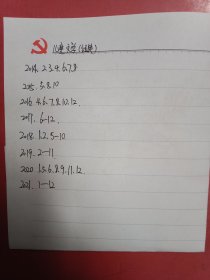 《建文学》(全月)
2014. 2.3.4.6.7.8
2015. 3.8.10
2016. 4.6.7.8.10.12
2017. 6-12
2018. 1.2.5-10
2019. 2-11
2020. 1.3.6.8.9.11.12
2021. 1-12